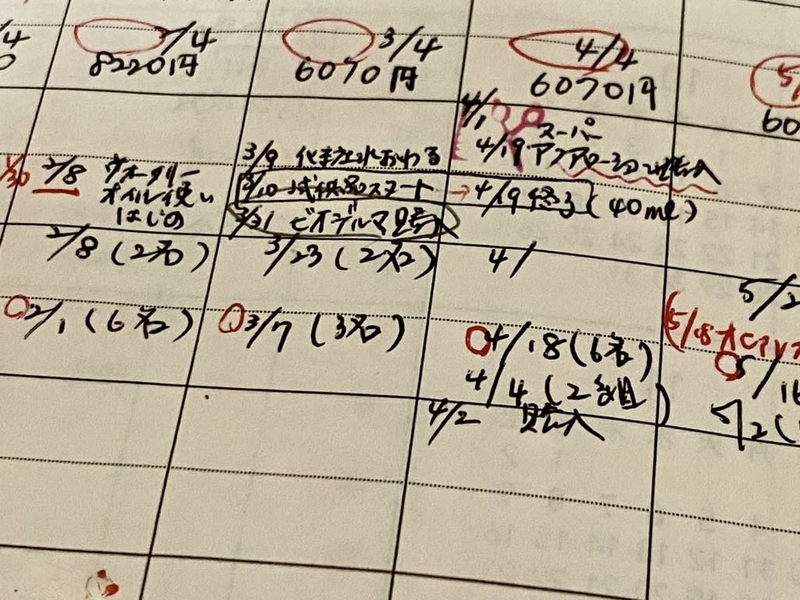 /4
0
/4
8220円
3/4
6070円
4/4
6070円
5/
60
1/30
2/8 ウォータリー
オイル使い
はじめ
2/8 (2名)
2/1 (6名)
3/9 化粧水おわる
3/10 試供品スタート → 4/19終了 (40ml)
3/21 ビオデルマ購入
3/23 (2名)
3/7 (3名)
4/1
スーパー
4/19
4/
4/18 (6名)
4/4 (2組)
4/2 購入
5/2
5/18
5/16
5/2 (